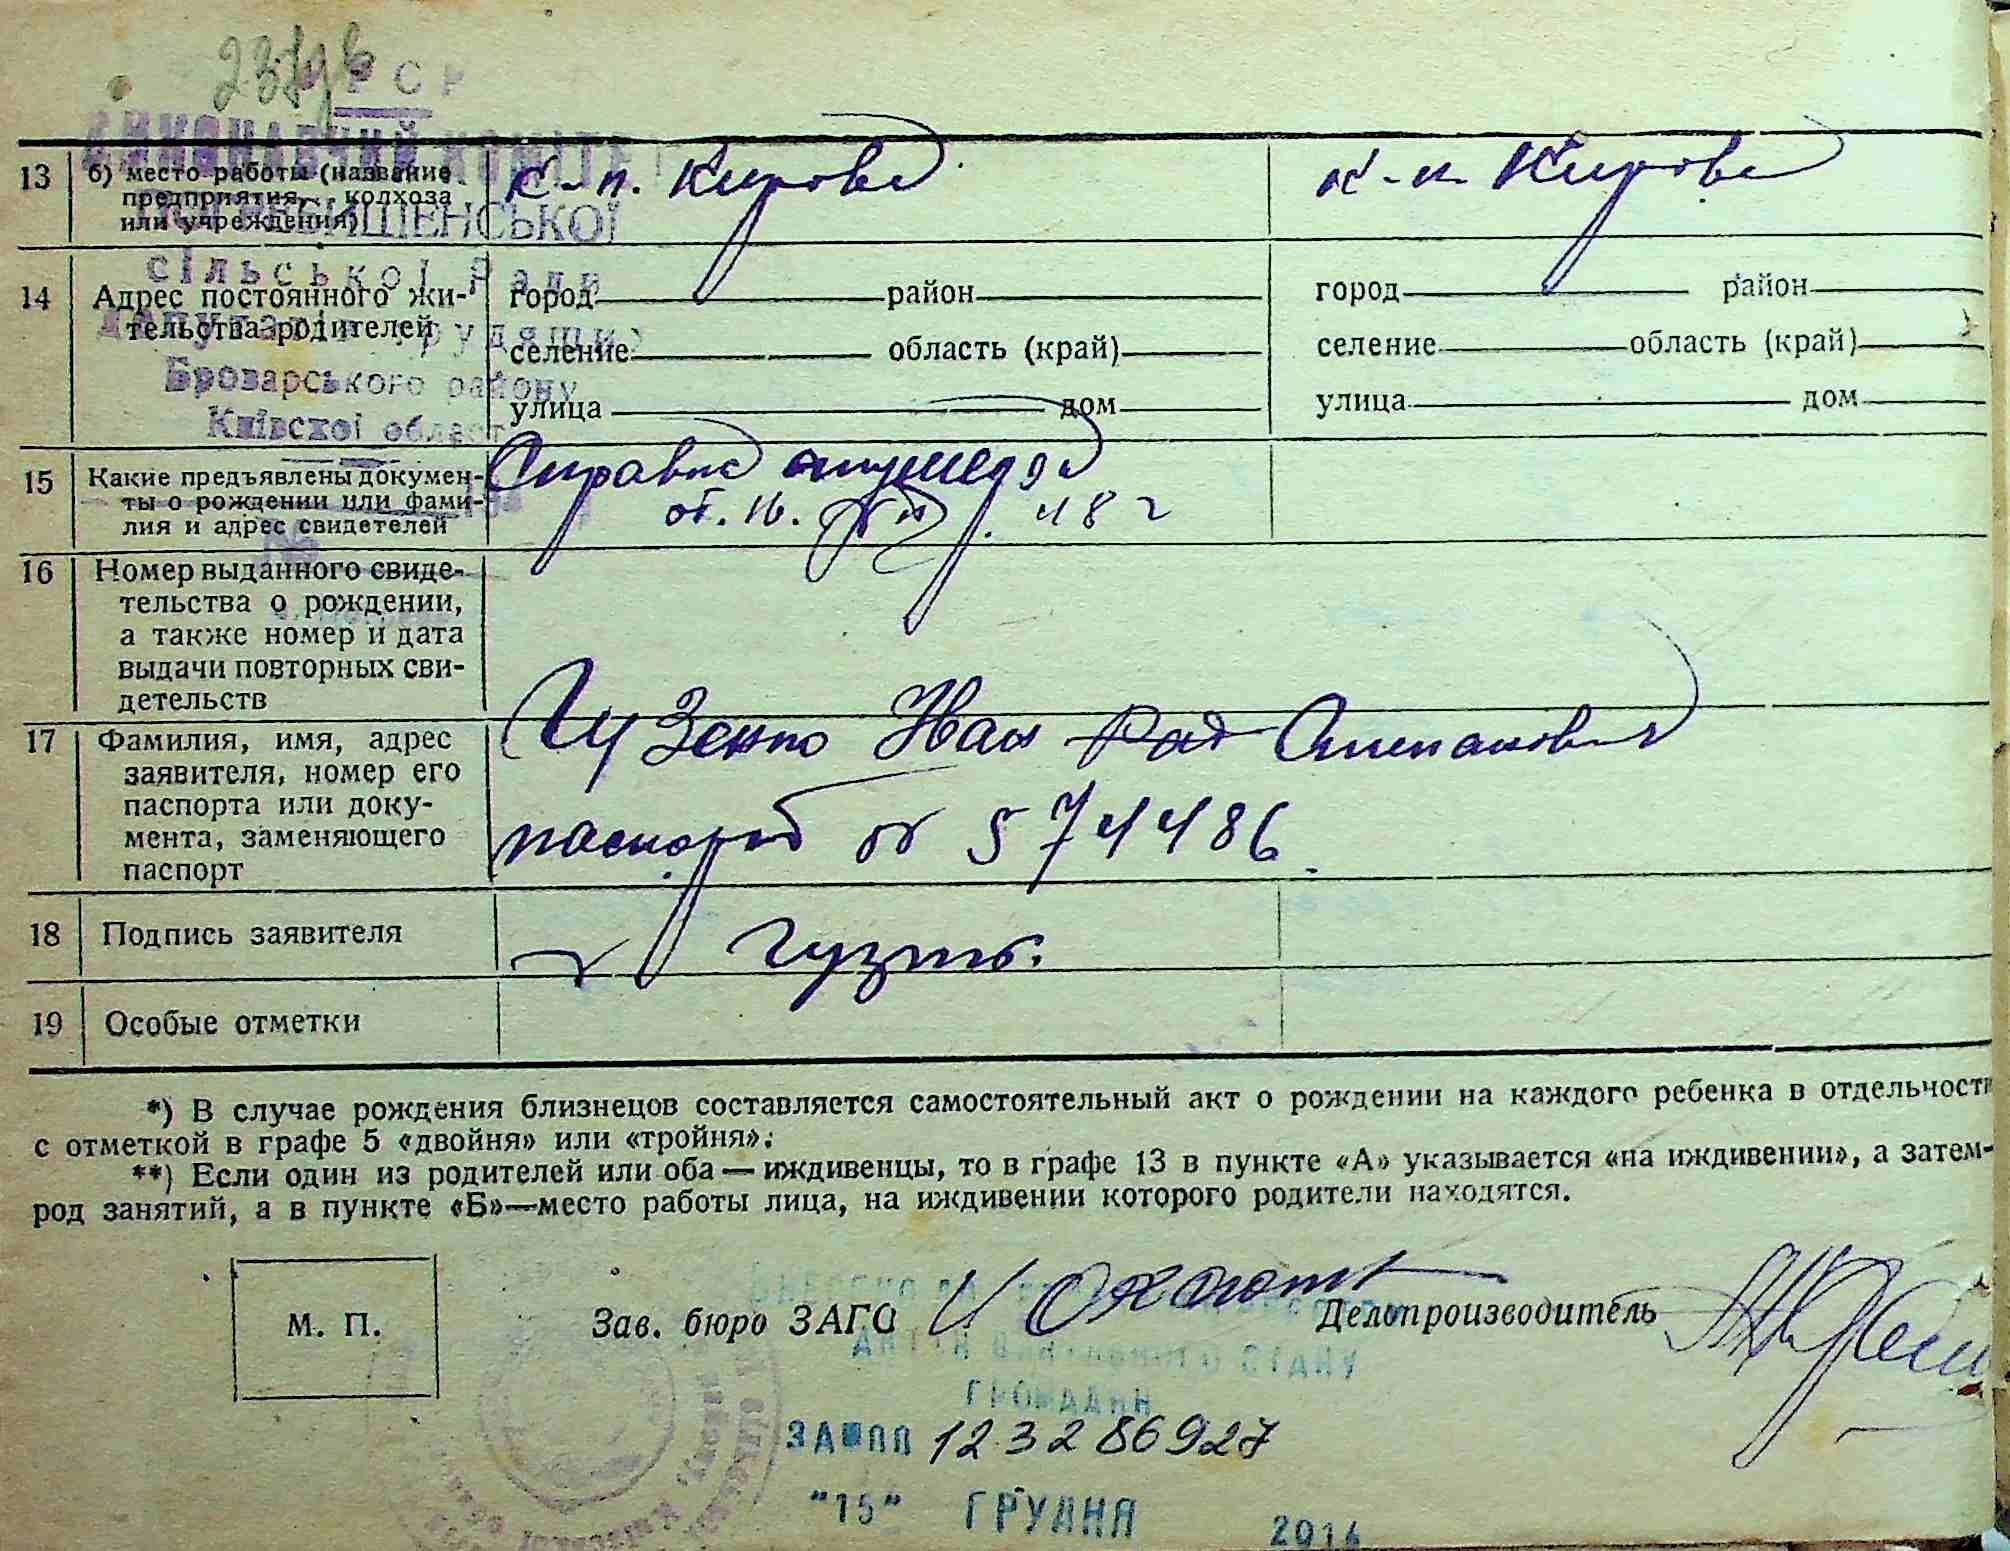 РСР
ВИКОНАВЧИЙ КОМІТЕТ
сільської Ради
Броварського району
Київської област
13 б) место работы (название предприятия, колхоза или учреждения)
к-п. Кирова
к-п. Кирова
14 Адрес постоянного жительства родителей
город район
селение область (край)
улица дом
город район
селение область (край)
улица дом
15 Какие предъявлены документы о рождении или фамилия и адрес свидетелей
Справка акушерки
от. 16. 48 г
16 Номер выданного свидетельства о рождении, а также номер и дата выдачи повторных свидетельств
17 Фамилия, имя, адрес заявителя, номер его паспорта или документа, заменяющего паспорт
Гузенко Иван Степанович
паспорт 574486
18 Подпись заявителя
19 Особые отметки
*) В случае рождения близнецов составляется самостоятельный акт о рождении на каждого ребенка в отдельности
с отметкой в графе 5 «двойня» или «тройня».
**) Если один из родителей или оба — иждивенцы, то в графе 13 в пункте «А» указывается «на иждивении», а затем—
род занятий, а в пункте «Б»—место работы лица, на иждивении которого родители находятся.
М. П.
Зав. бюро ЗАГС
Делопроизводитель
СТАНУ
ГРОМАДЯН
123286927
"15" ГРУДНЯ 2014